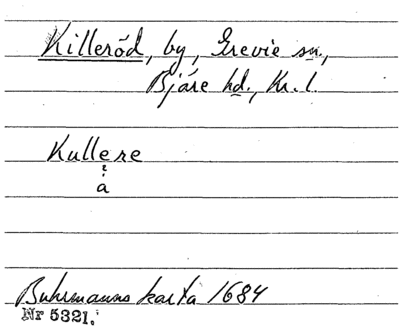 Killeröd, by, Grevie sn.,
Bjäre hd., Kr. l.
Kullere
?
a
Buhrmanns karta 1684
Nr 5321.